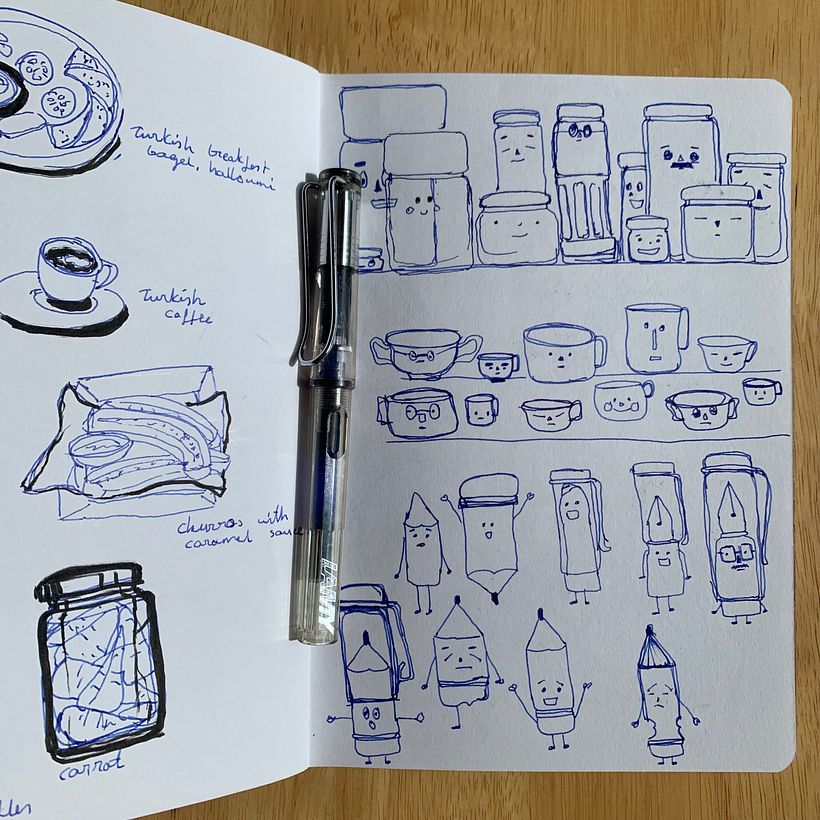 Turkish breakfast,
bagel, halloumi
Turkish
coffee
churros with
caramel sauce
LAMY
carrot